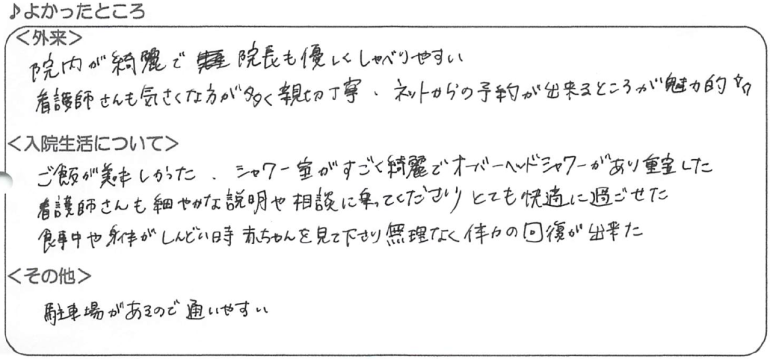 ♪よかったところ
＜外来＞
院内が綺麗で 院長も優しくしゃべりやすい
看護師さんも気さくな方が多く親切丁寧、ネットからの予約が出来るところが魅力的☆☆
＜入院生活について＞
ご飯が美味しかった、シャワー室がすごく綺麗でオーバーヘッドシャワーがあり重宝した
看護師さんも細やかな説明や相談に乗ってくださりとても快適に過ごせた
食事中や身体がしんどい時赤ちゃんを見て下さり無理なく体力の回復が出来た
＜その他＞
駐車場があるので通いやすい